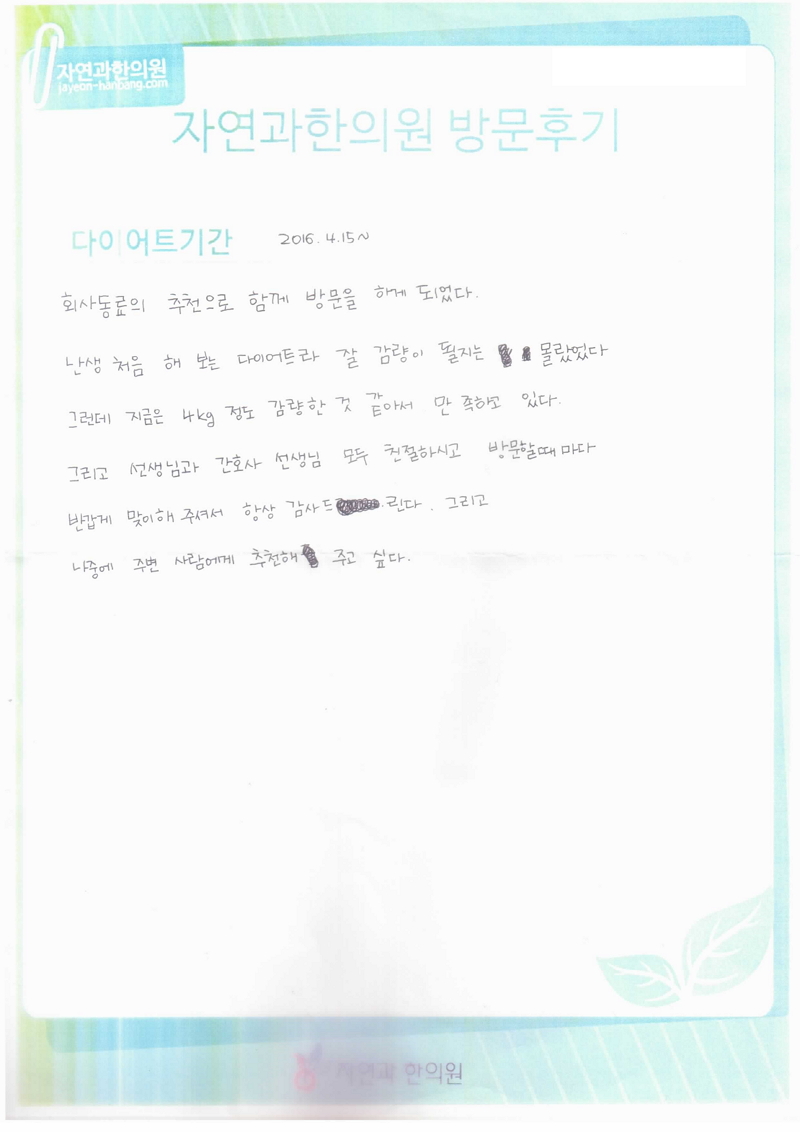 자연과한의원
jayeon-hanbang.com
자연과한의원 방문후기
다이어트기간 2016. 4.15~
회사동료의 추천으로 함께 방문을 하게 되었다.
난생 처음 해 보는 다이어트라 잘 감량이 될지는 몰랐었다
그런데 지금은 4kg 정도 감량한 것 같아서 만족하고 있다.
그리고 선생님과 간호사 선생님 모두 친절하시고 방문할때 마다
반갑게 맞이해 주셔서 항상 감사드린다. 그리고
나중에 주변 사람에게 추천해 주고 싶다.
자연과 한의원